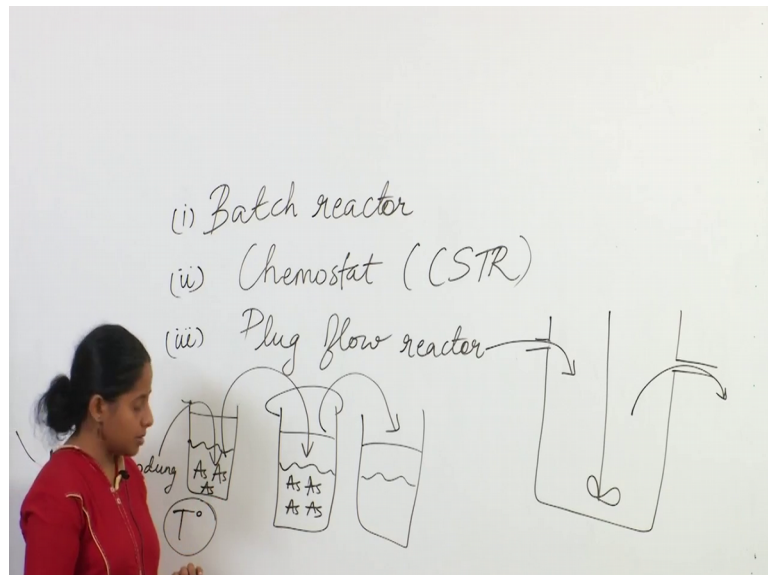 (i) Batch reactor
(ii) Chemostat (CSTR)
(iii) Plug flow reactor
As As
As
As As
As As
T°